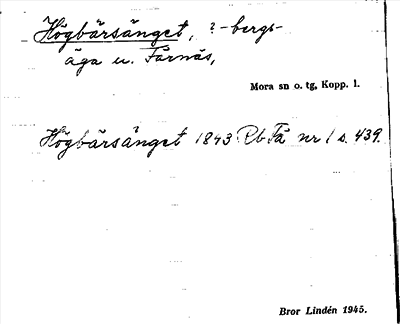 Högbärsänget, ?-bergs-
äga u. Färnäs,
Mora sn o. tg, Kopp. l.
Högbärsänget 1843 Rb Fä nr 1 s. 439.
Bror Lindén 1945.